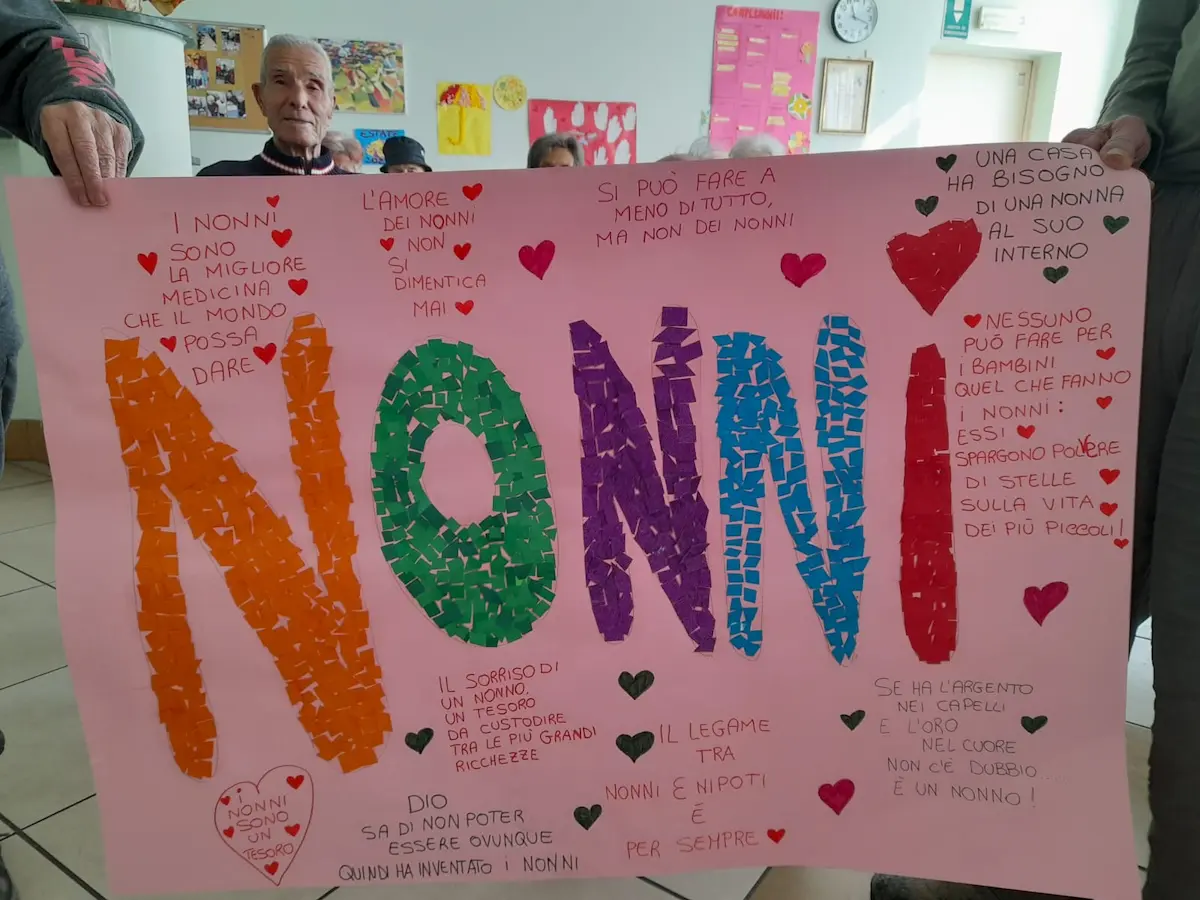 COMPLEANNI!
ESTATE
I NONNI
SONO
LA MIGLIORE
MEDICINA
CHE IL MONDO
POSSA
DARE
L'AMORE
DEI NONNI
NON
SI
DIMENTICA
MAI
SI PUÒ FARE A
MENO DI TUTTO,
MA NON DEI NONNI
UNA CASA
HA BISOGNO
DI UNA NONNA
AL SUO
INTERNO
NONNI
NESSUNO
PUÒ FARE PER
I BAMBINI
QUEL CHE FANNO
I NONNI:
ESSI
SPARGONO POLVERE
DI STELLE
SULLA VITA
DEI PIÙ PICCOLI!
IL SORRISO DI
UN NONNO,
UN TESORO
DA CUSTODIRE
TRA LE PIÙ GRANDI
RICCHEZZE
I
NONNI
SONO
UN
TESORO
DIO
SA DI NON POTER
ESSERE OVUNQUE
QUINDI HA INVENTATO I NONNI
IL LEGAME
TRA
NONNI E NIPOTI
È
PER SEMPRE
SE HA L'ARGENTO
NEI CAPELLI
E L'ORO
NEL CUORE
NON C'È DUBBIO...
È UN NONNO!